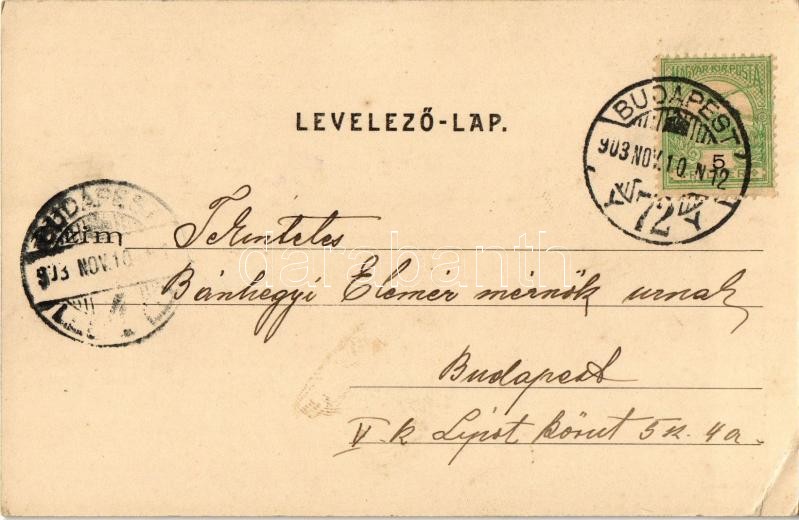 MAGYAR KIR. POSTA
LEVELEZŐ-LAP.
BUDAPEST
903 NOV. 10. N 12
5
72
BUDAPEST
903 NOV. 10
Tekintetes
Bánhegyi Elemér mérnök urnak
darabanth
Budapest
V. k. Lipót körut 5 sz. 4 a.